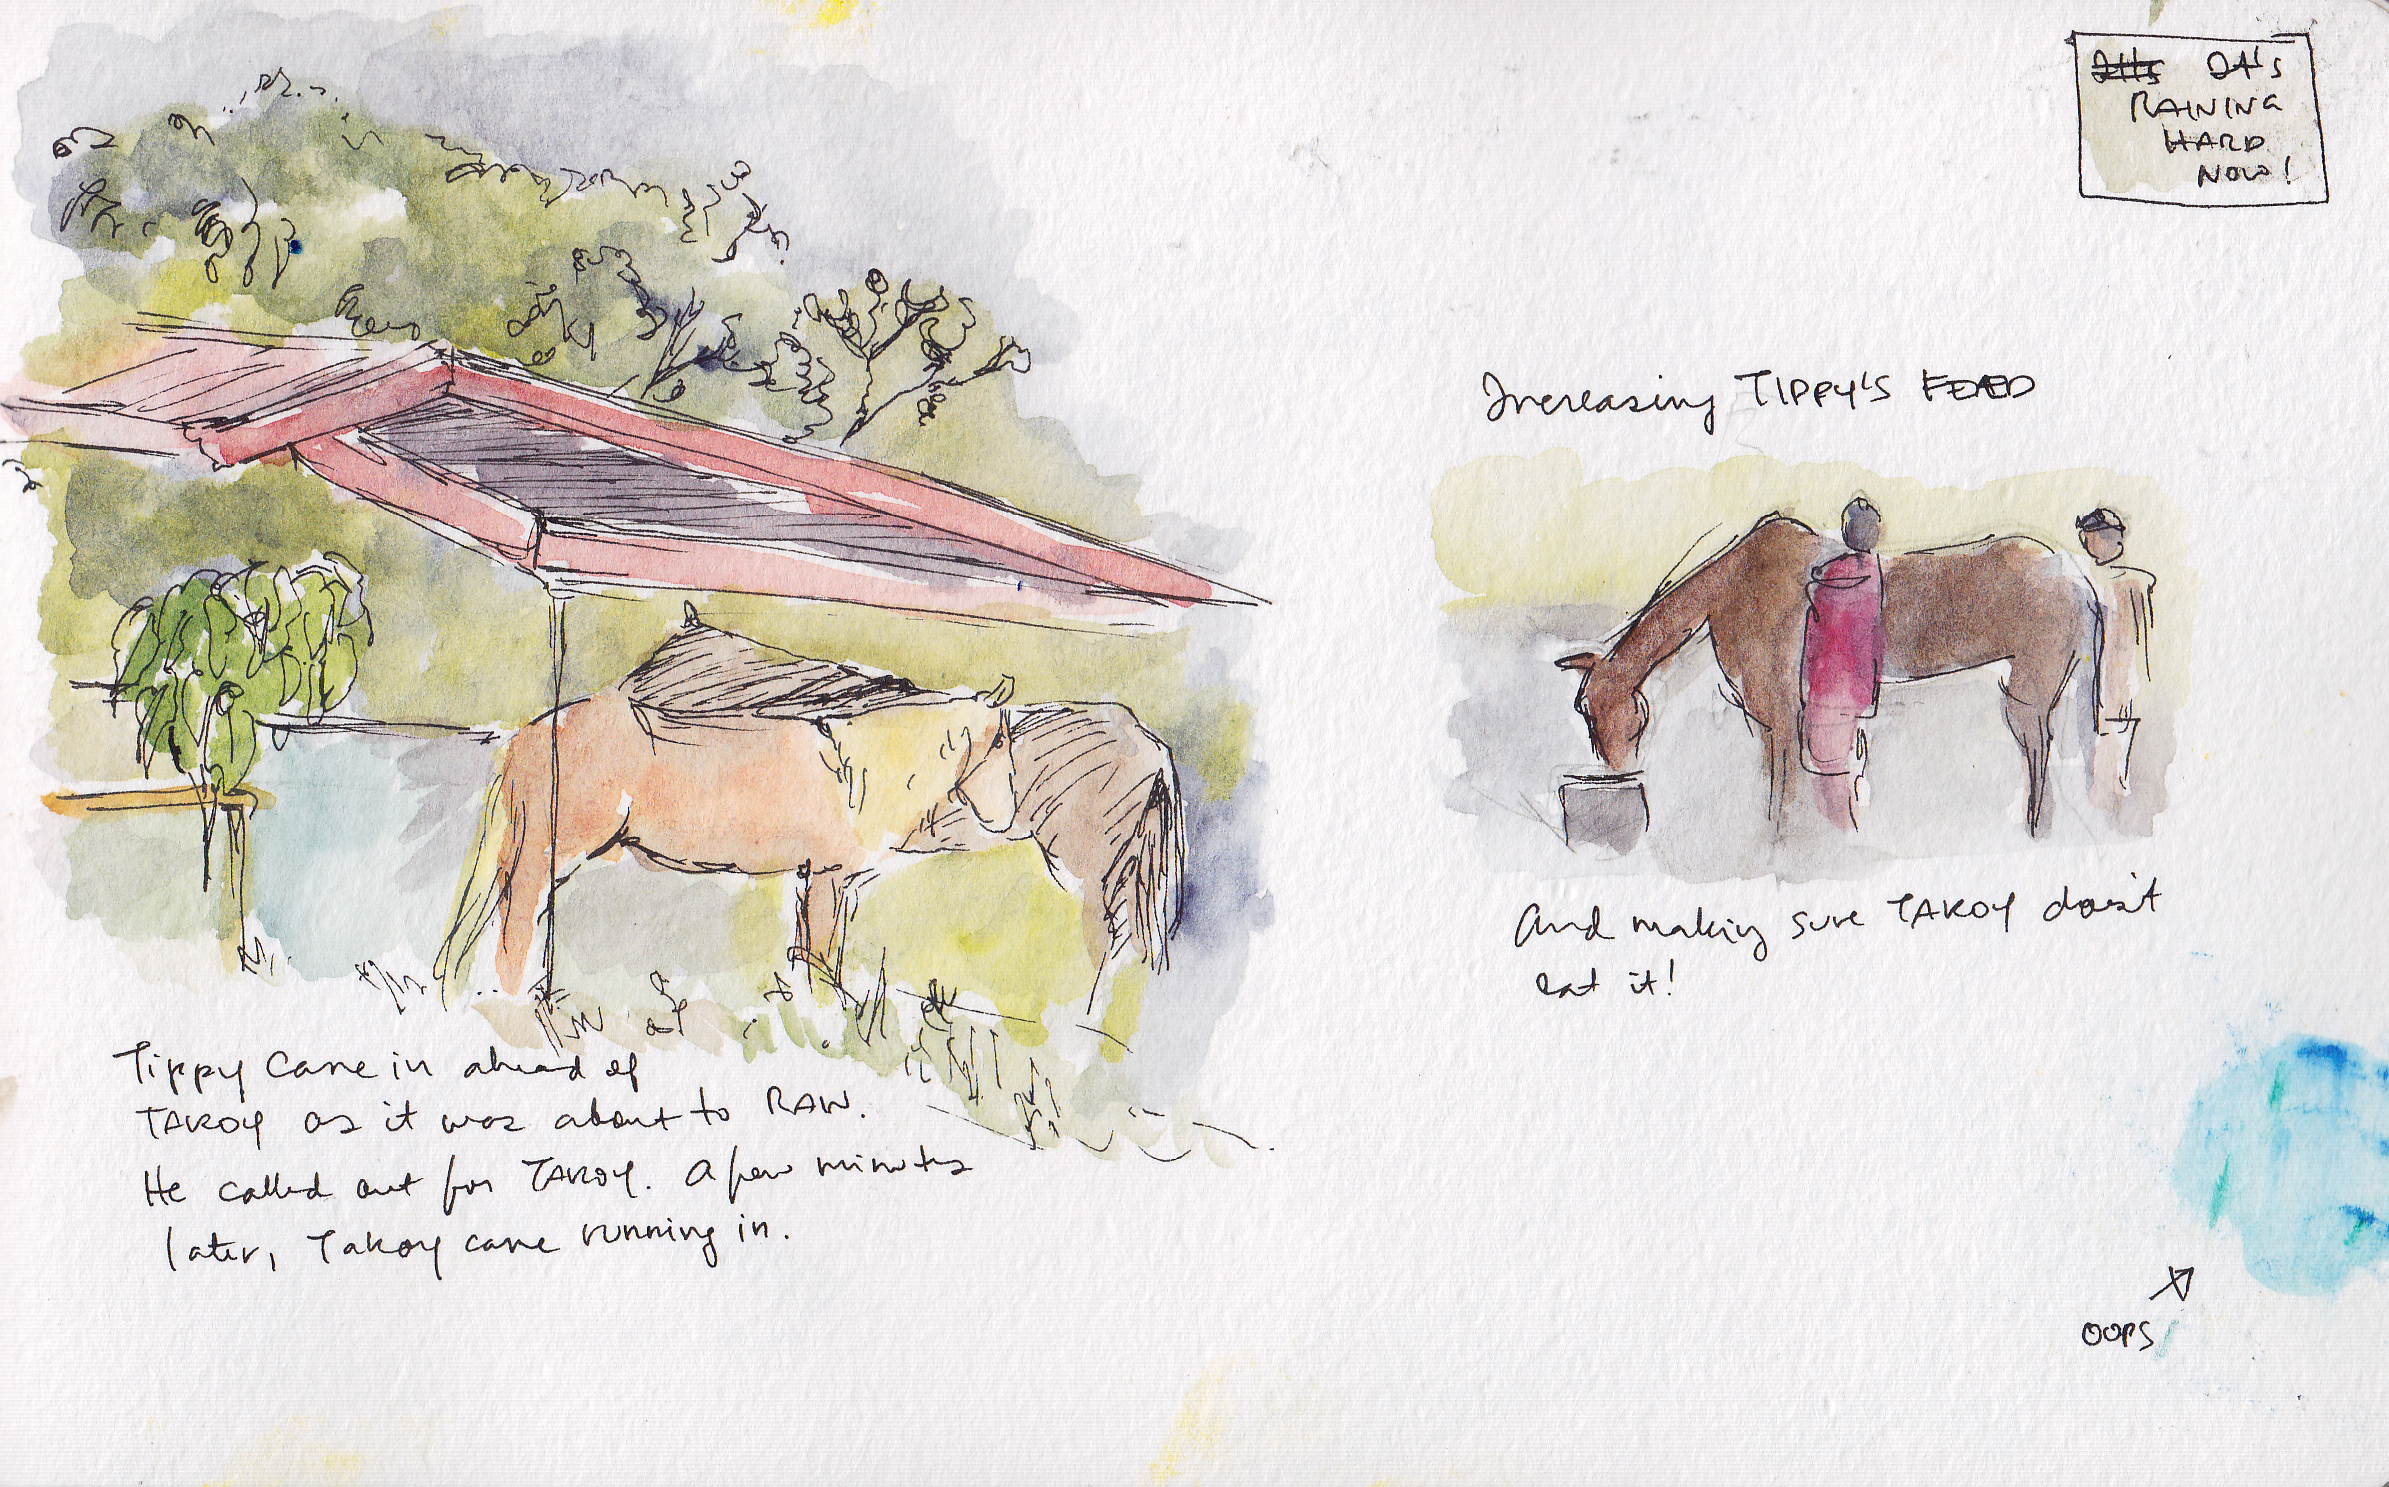 Tippy came in ahead of
TAKOY as it was about to RAIN.
He called out for TAKOY. A few minutes
later, Takoy came running in.
It's It's
RAINING
HARD
NOW!
Increasing TIPPY'S FEED
And making sure TAKOY doesn't
eat it!
OOPS